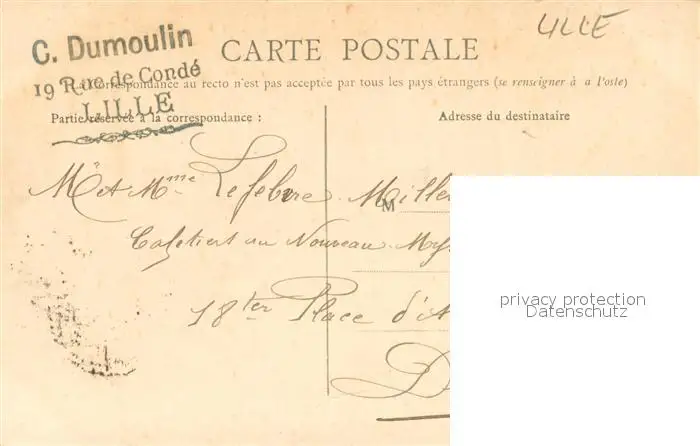 C. Dumoulin
19 Rue de Condé
LILLE
LILLE
CARTE POSTALE
La Correspondance au recto n'est pas acceptée par tous les pays étrangers (se renseigner à a l'oste)
Partie réservée à la correspondance :
Adresse du destinataire
Mr et Mme Lefebvre Miller
M
Cafetiers au Nouveau
18ter Place d'A
D
privacy protection
Datenschutz